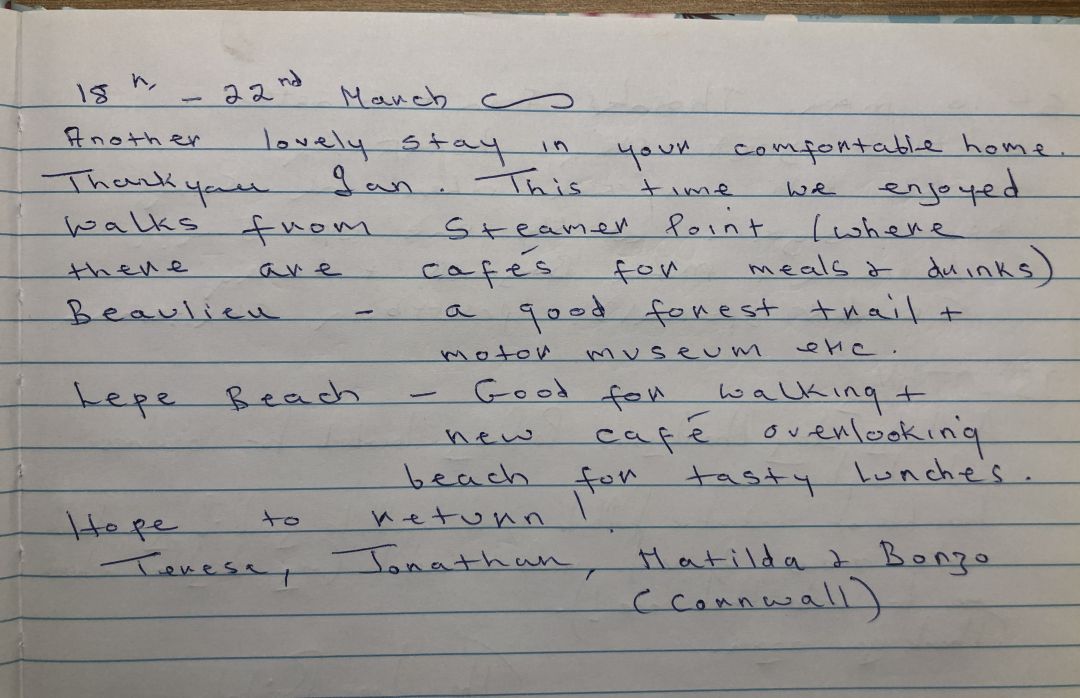 18th - 22nd March
Another lovely stay in your comfortable home.
Thankyou Jan. This time we enjoyed
walks from Steamer Point (where
there are cafés for meals & drinks)
Beaulieu - a good forest trail +
motor museum etc.
Lepe Beach - Good for walking +
new café overlooking
beach for tasty lunches.
Hope to return!
Teresa, Jonathan, Matilda & Bonzo
(Cornwall)